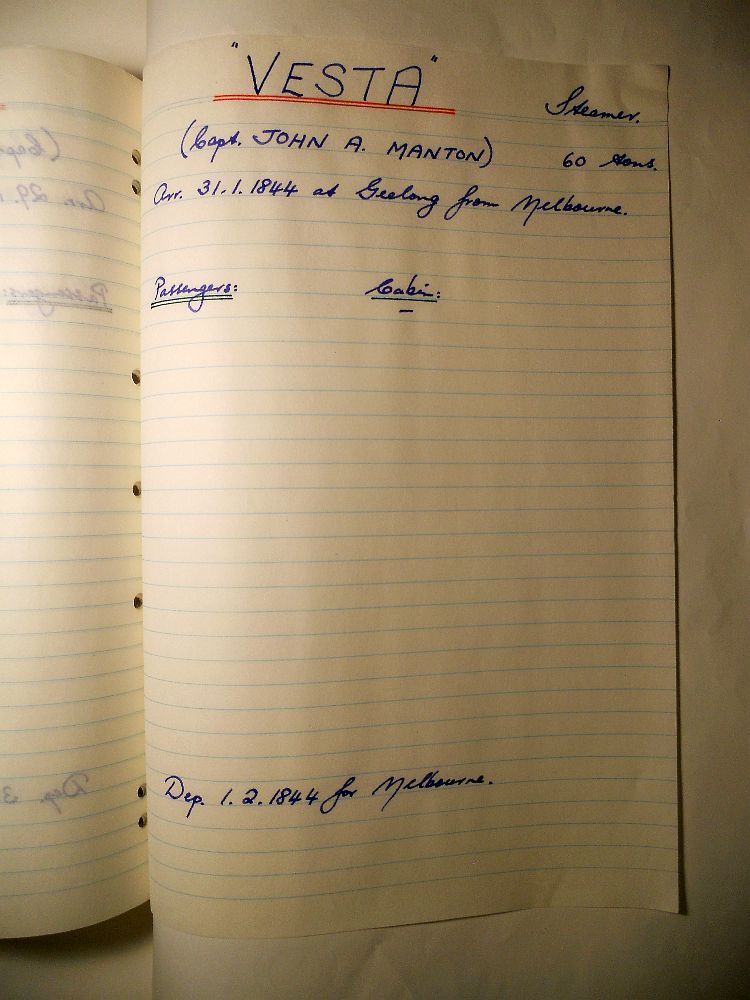 "VESTA"
Steamer.
(Capt. JOHN A. MANTON) 60 tons.
Arr. 31.1.1844 at Geelong from Melbourne.
Passengers: Cabin:
–
Dep. 1.2.1844 for Melbourne.